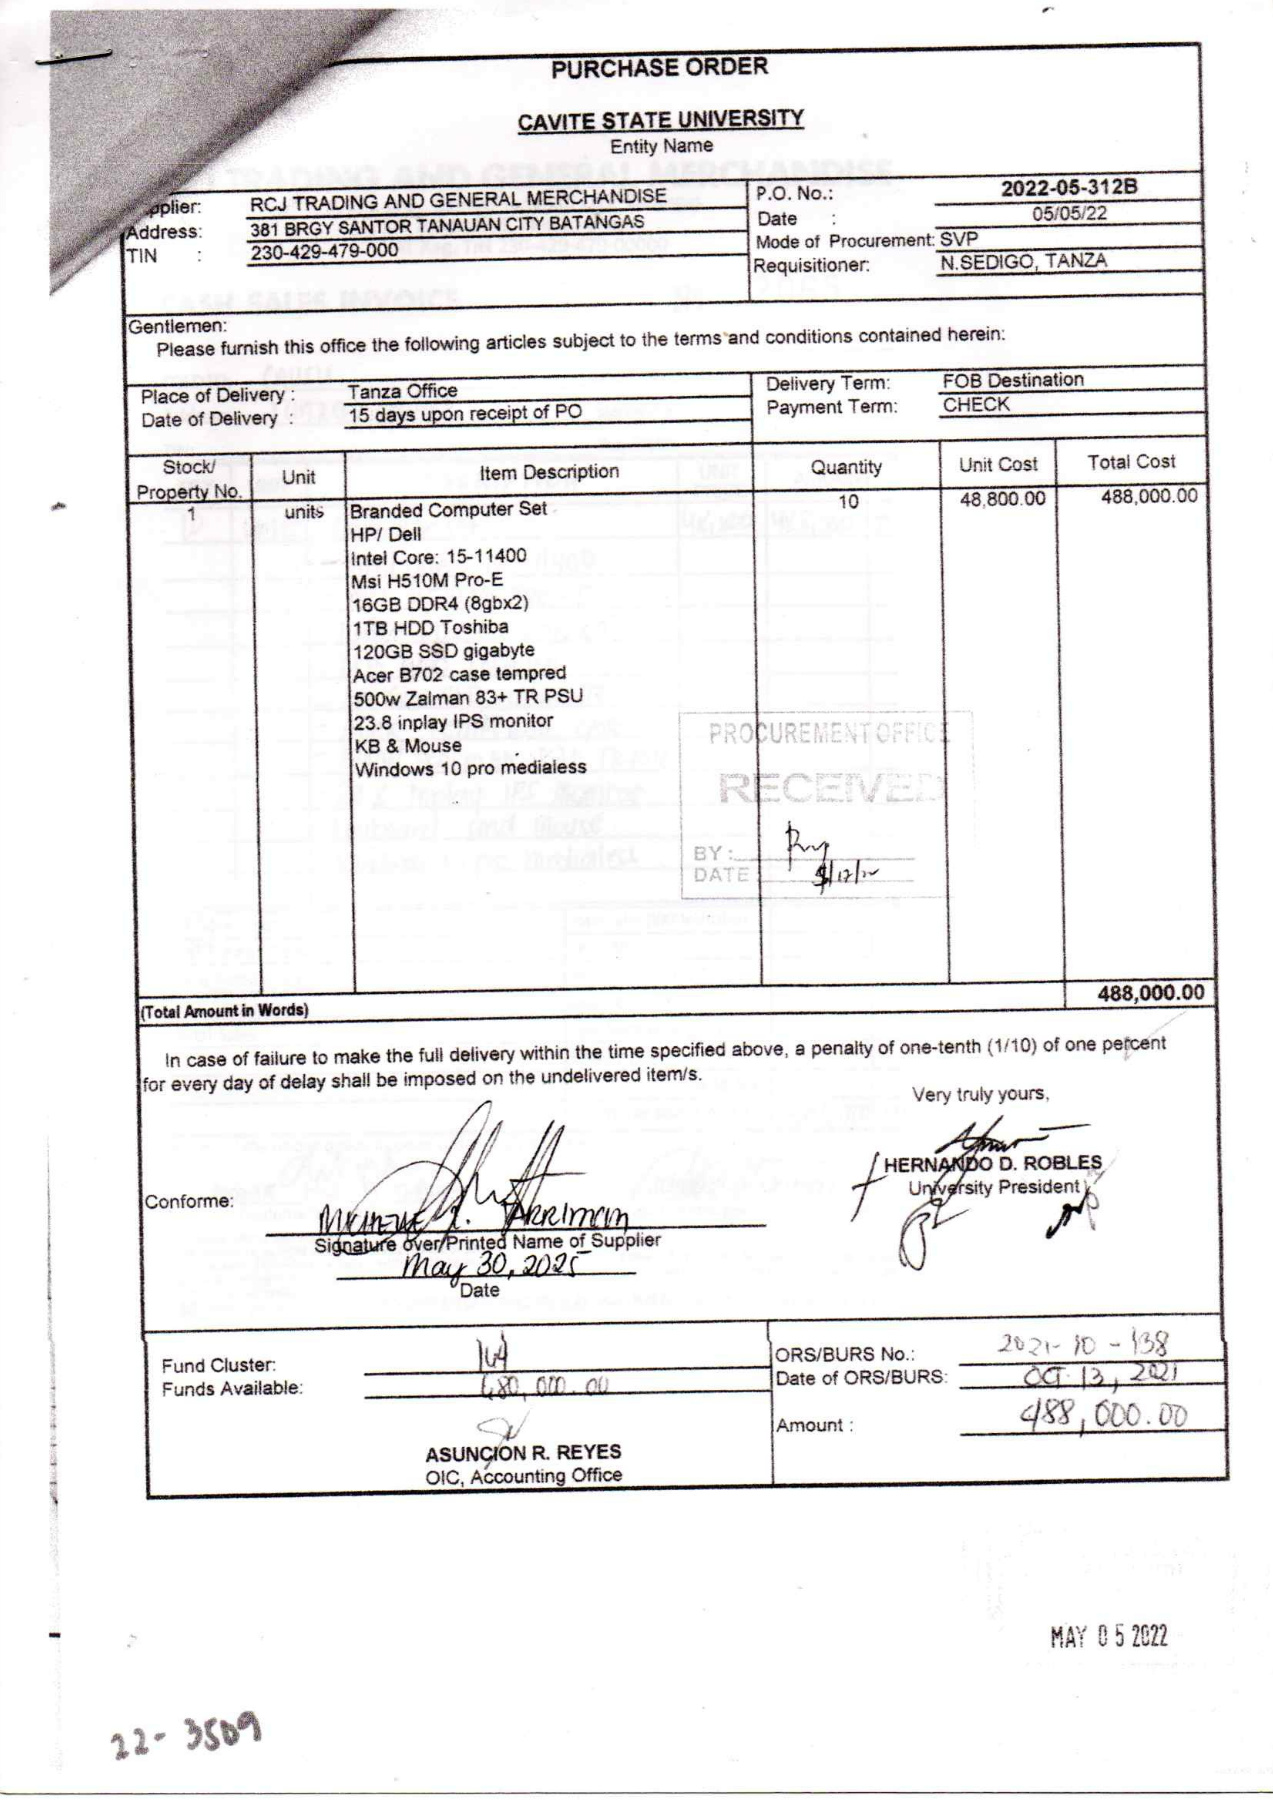 PURCHASE ORDER
CAVITE STATE UNIVERSITY
Entity Name
pplier: RCJ TRADING AND GENERAL MERCHANDISE
Address: 381 BRGY SANTOR TANAUAN CITY BATANGAS
TIN : 230-429-479-000
P.O. No.: 2022-05-312B
Date : 05/05/22
Mode of Procurement: SVP
Requisitioner: N.SEDIGO, TANZA
Gentlemen:
Please furnish this office the following articles subject to the terms and conditions contained herein:
Place of Delivery : Tanza Office
Date of Delivery : 15 days upon receipt of PO
Delivery Term: FOB Destination
Payment Term: CHECK
Stock/ Property No. Unit Item Description Quantity Unit Cost Total Cost
1 units Branded Computer Set 10 48,800.00 488,000.00
HP/ Dell
Intel Core: 15-11400
Msi H510M Pro-E
16GB DDR4 (8gbx2)
1TB HDD Toshiba
120GB SSD gigabyte
Acer B702 case tempred
500w Zalman 83+ TR PSU
23.8 inplay IPS monitor
KB & Mouse
Windows 10 pro medialess
PROCUREMENT OFFICE
RECEIVED
BY:
DATE
488,000.00
(Total Amount in Words)
In case of failure to make the full delivery within the time specified above, a penalty of one-tenth (1/10) of one percent
for every day of delay shall be imposed on the undelivered item/s.
Very truly yours,
HERNANDO D. ROBLES
University President
Conforme:
Signature over Printed Name of Supplier
May 30, 2025
Date
Fund Cluster: 164
Funds Available: 480,000.00
ASUNCION R. REYES
OIC, Accounting Office
ORS/BURS No.: 2021-10-138
Date of ORS/BURS: OCT. 13, 2021
Amount : 488,000.00
MAY 05 2022
22-3509